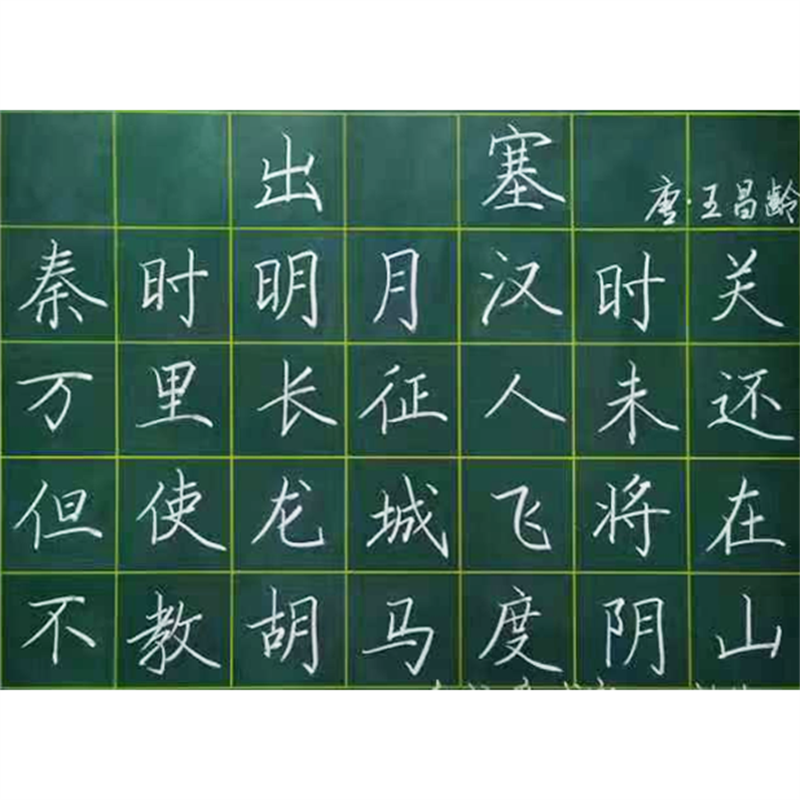 出塞
唐·王昌龄
秦时明月汉时关
万里长征人未还
但使龙城飞将在
不教胡马度阴山